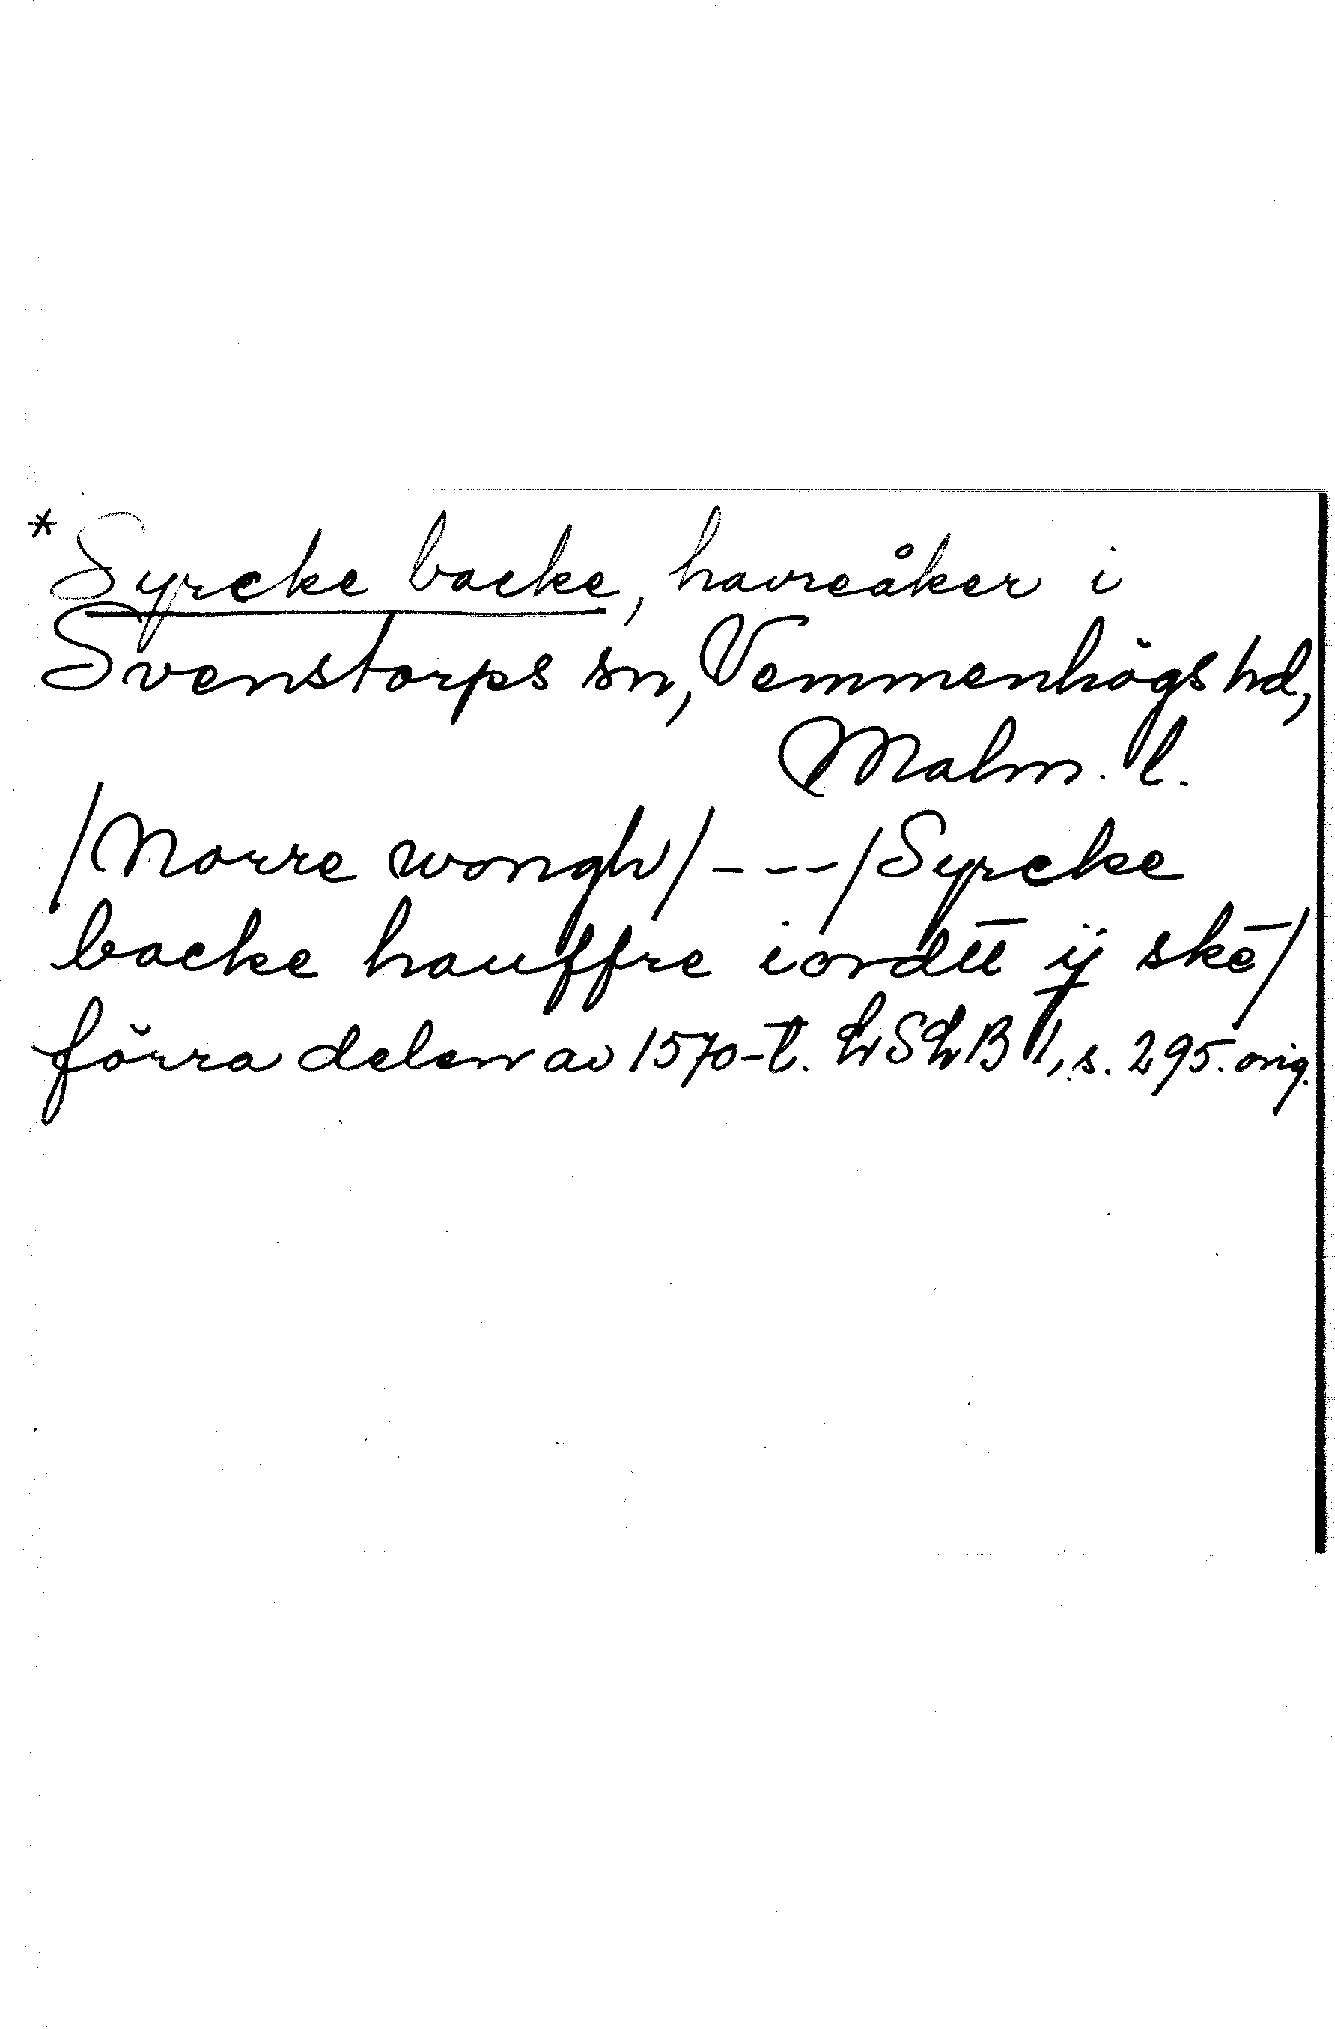 *Syrcke backe, havreåker i
Svenstorps sn, Vemmenhögs hd,
Malm. l.
/Norre wongh/ - - - /Syrcke
backe hauffre iordtt ij skē/
förra delen av 1570-t. LSLB I, s. 295. orig.